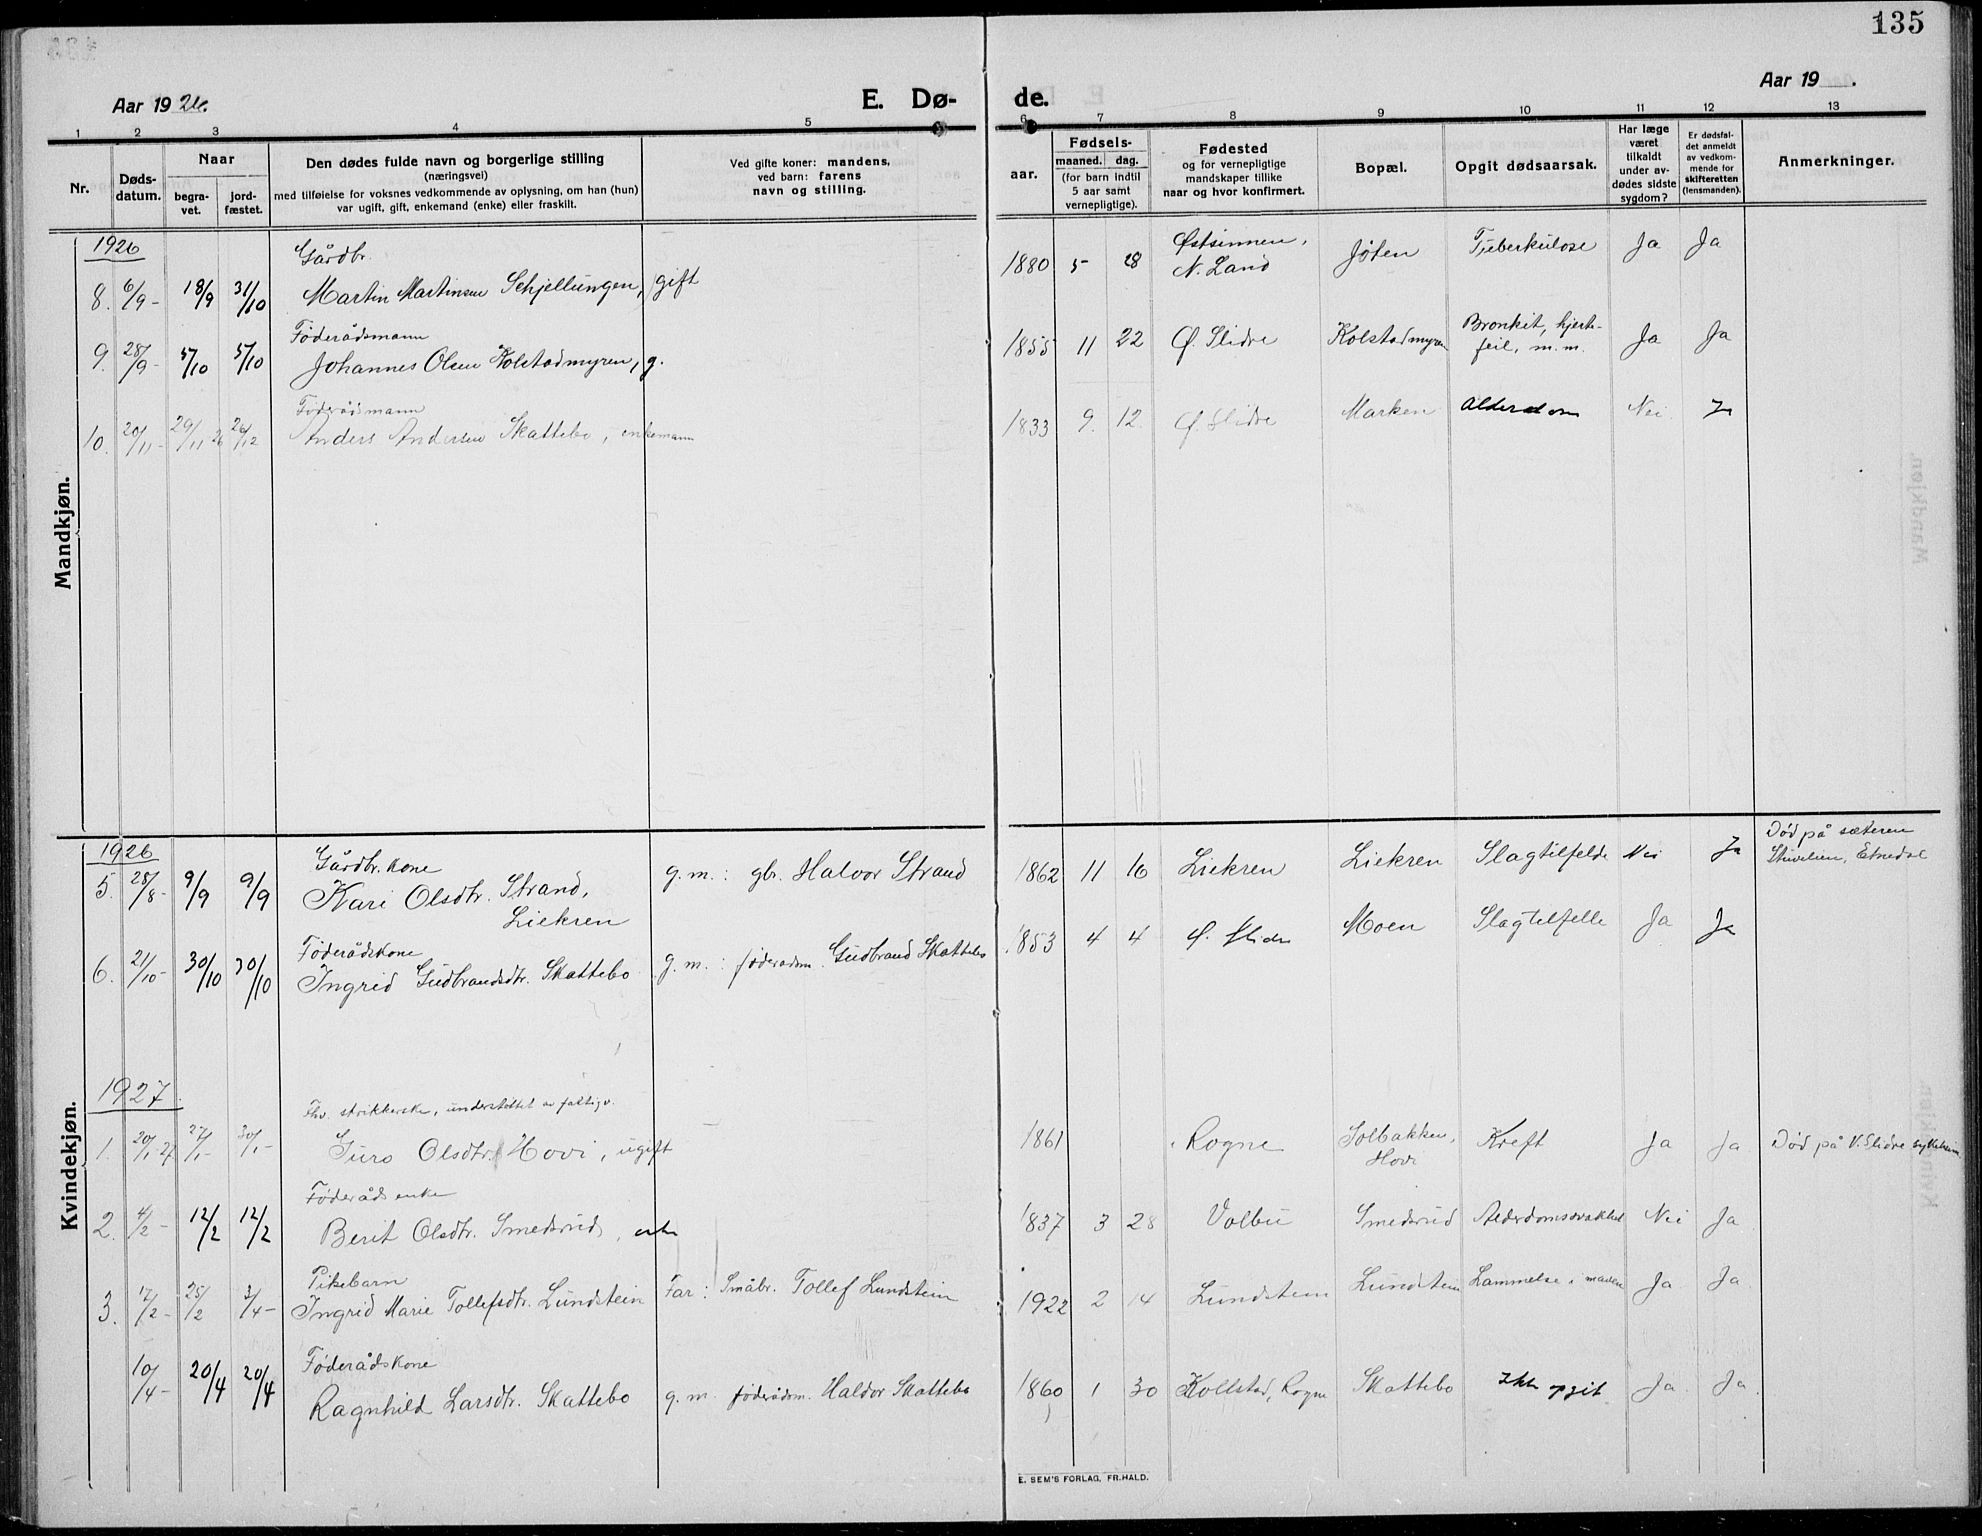 135
Aar 1926.
E. Dø-
de.
Aar 19 .
1 2 3 4 5 6 7 8 9 10 11 12 13
Nr.
Døds-
datum.
Naar
begra-
vet.
jord-
fæstet.
Den dødes fulde navn og borgerlige stilling
(næringsvei)
med tilføielse for voksnes vedkommende av oplysning, om han (hun)
var ugift, gift, enkemand (enke) eller fraskilt.
Ved gifte koner: mandens,
ved barn: farens
navn og stilling.
Fødsels-
aar.
maaned. dag.
(for barn indtil
5 aar samt
vernepligtige).
Fødested
og for vernepligtige
mandskaper tillike
naar og hvor konfirmert.
Bopæl.
Opgit dødsaarsak.
Har læge
været
tilkaldt
under av-
dødes sidste
sygdom?
Er dødsfal-
det anmeldt
av vedkom-
mende for
skifteretten
(lensmanden).
Anmerkninger.
Mandkjøn.
1926
Gårdbr.
8. 6/9- 18/9 31/10 Martin Martinsen Schjellungen, gift
1880 5 28 Østsinnen, N. Land Jøten Tuberkulose Ja Ja
Føderådsmann
9. 28/9- 5/10 5/10 Johannes Olsen Kolstadmyren, g.
1855 11 22 Ø. Slidre Kolstadmyren Bronkit, hjerte-
feil, m.m. Ja Ja
Føderådsmann
10. 20/11- 29/11 26 26/12 Anders Andersen Skattebo, enkemann
1833 9. 12. Ø. Slidre Marken Alderdom Nei Ja
Kvindekjøn.
1926
Gårdbr.kone
5. 28/8- 9/9 9/9 Kari Olsdtr. Strand,
Liekren
g.m.: gbr. Halvor Strand
1862 11 16 Liekren Liekren Slagtilfelde Nei Ja Død på sæteren
Etnedal
Føderådskone
6. 21/10- 30/10 30/10 Ingrid Gudbrandsdtr. Skattebo
g.m.: føderådsm. Gudbrand Skattebo
1853 4 4 Ø. Slidre Moen Slagtilfelle Ja Ja
1927
Fhv. strikkerske, understøttet av fattigv.
1. 20/1-27 27/1- 30/1- Guro Olsdtr. Hovi, ugift
1861 Rogne Solbakken,
Hovi Kreft Ja Ja Død på V. Slidre sykeheim
Føderådsenke
2. 4/2- 12/2 12/2 Berit Olsdtr. Smedsrud, enke
1837 3 28 Volbu Smedsrud Alderdomssvakhet Nei Ja
Pikebarn
3. 17/2- 25/2 3/4- Ingrid Marie Tollefsdtr. Lundstein
Far: Småbr. Tollef Lundstein
1922 2 14 Lundstein Lundstein Lammelse i maven Ja Ja
Føderådskone
10/4- 20/4 20/4 Ragnhild Larsdtr. Skattebo
g.m. føderådsm. Haldor Skattebo
1860 1 30 Kollstad, Rogne Skattebo Ikke opgit Ja Ja
E. SEM'S FORLAG, FR.HALD.